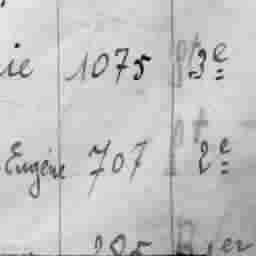 ie 1075 3e
Eugène 707 2e
er